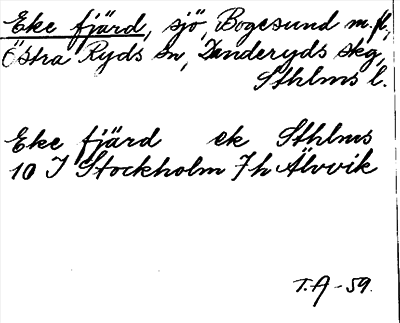 Eke fjärd, sjö, Bogesund m.fl,
Östra Ryds sn, Danderyds skg,
Sthlms l.
Eke fjärd ek Sthlms
10 I Stockholm 7h Älvvik
T.A -59.